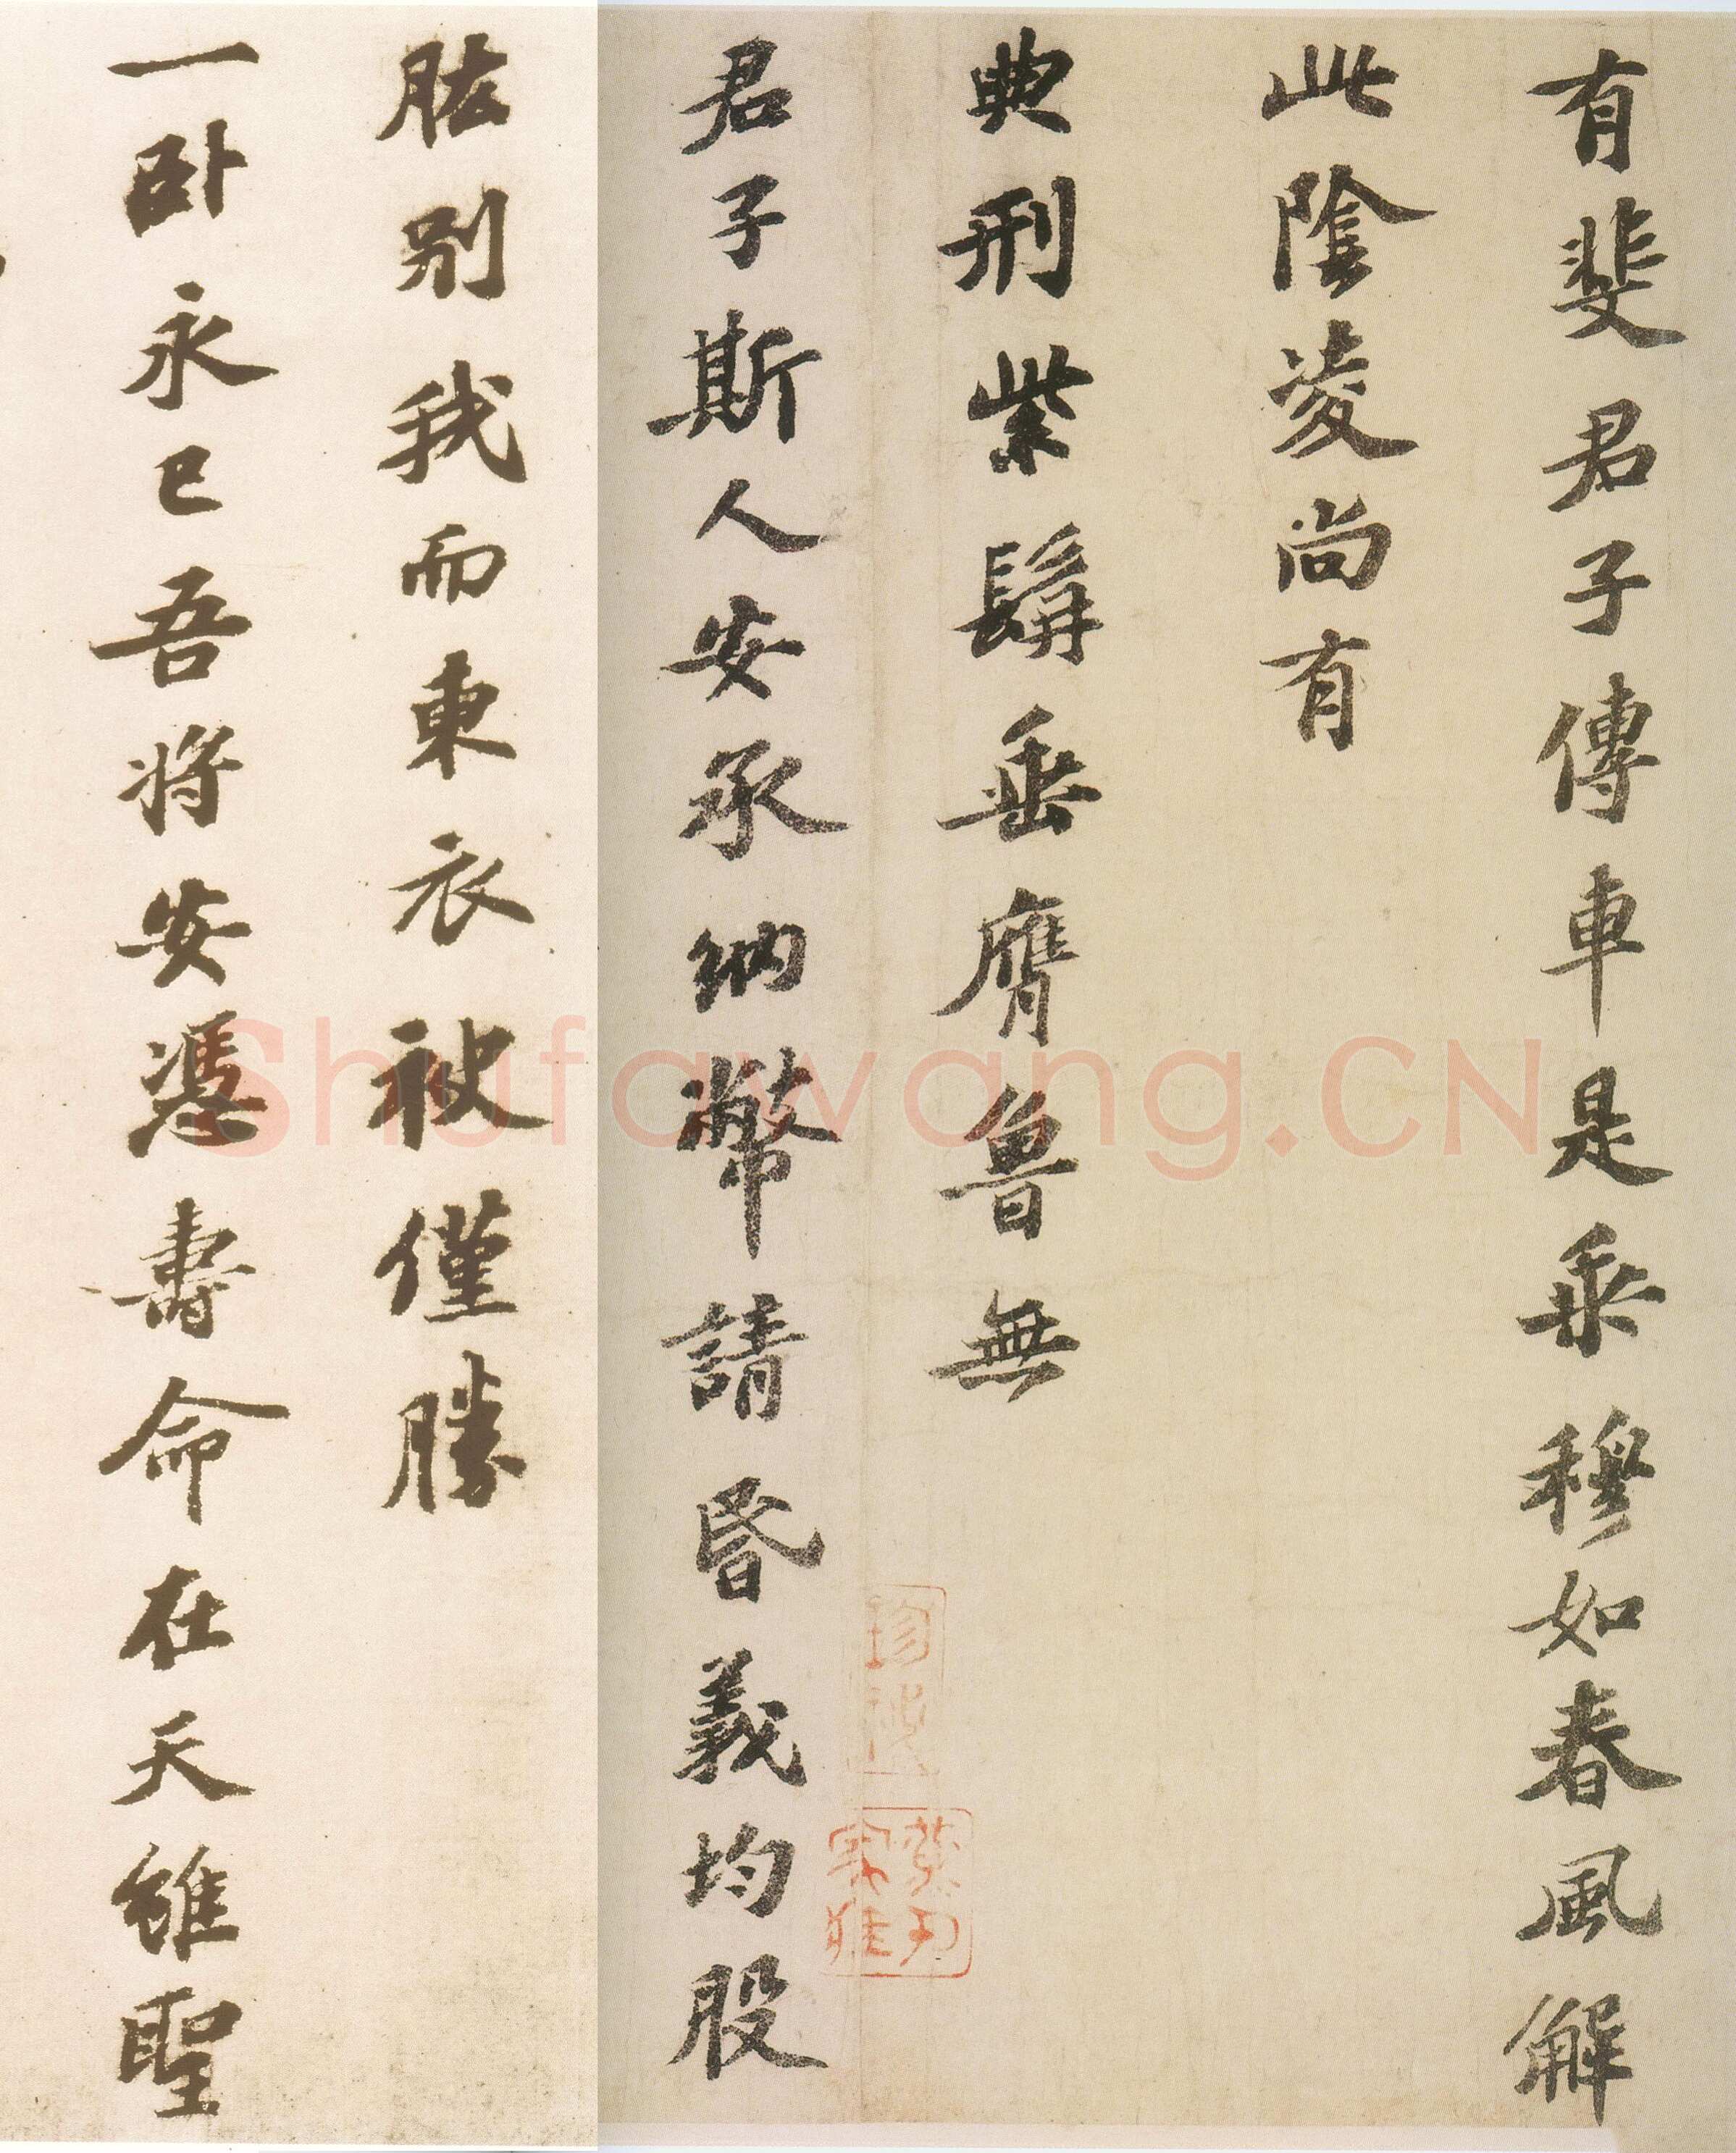 有斐君子傳車是乘穆如春風解
此陰凌尚有
典刑紫髯垂膺魯無
君子斯人安承納幣請昏義均股
肱別我而東衣袂僅勝
一臥永已吾將安憑壽命在天雖聖
Shufawang.CN